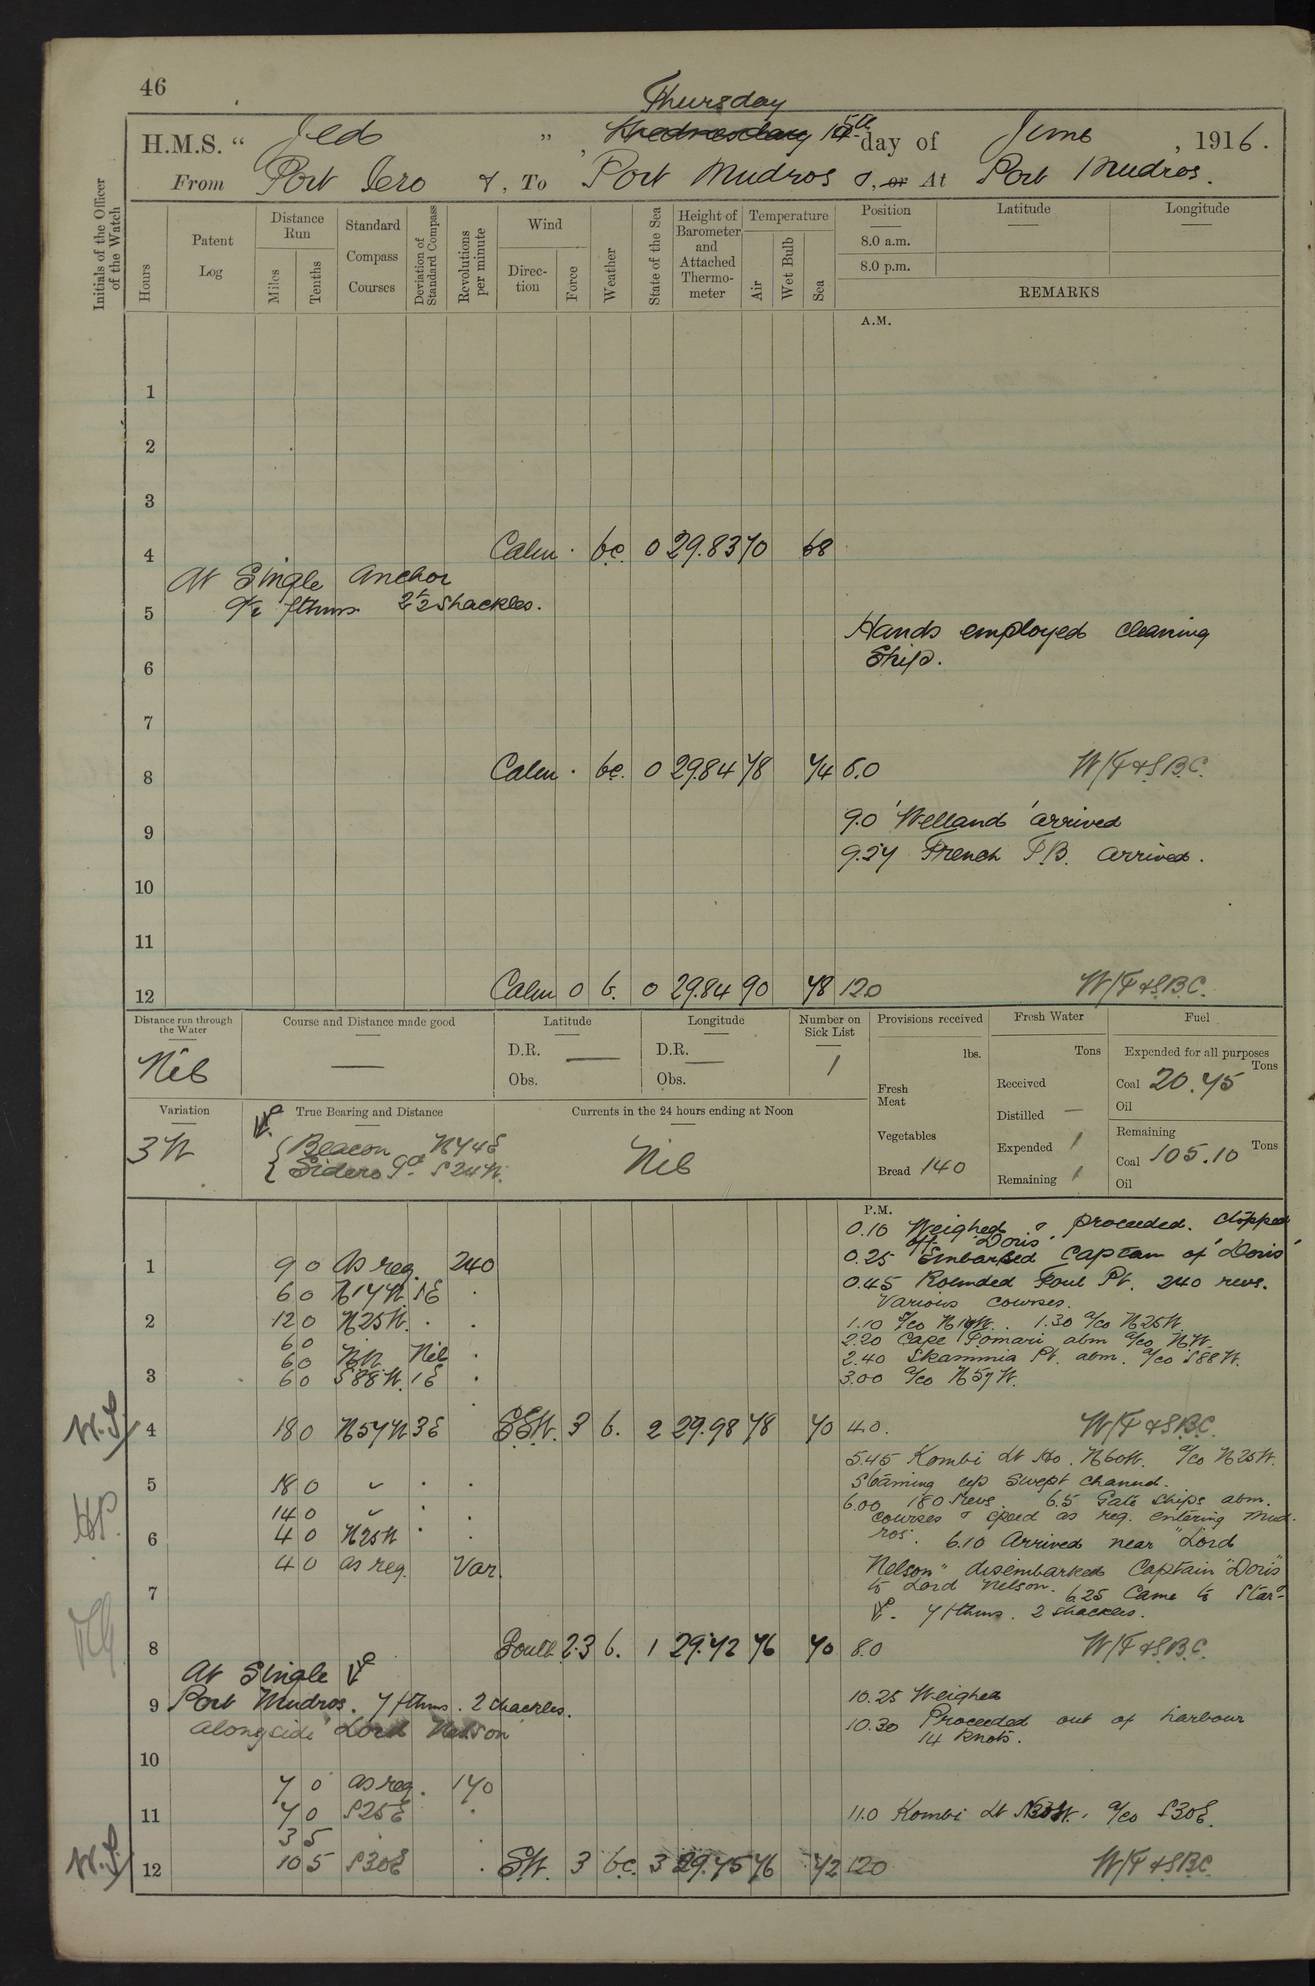 46
Thursday
H.M.S. “ Jed ” , Wednesday 15th day of June , 1916.
From Port Iero &, To Port Mudros &, or At Port Mudros.
Initials of the Officer of the Watch
Hours
Patent Log
Distance Run
Miles
Tenths
Standard Compass Courses
Deviation of Standard Compass
Revolutions per minute
Wind
Direction
Force
Weather
State of the Sea
Height of Barometer and Attached Thermometer
Temperature
Air
Wet Bulb
Sea
Position
8.0 a.m.
8.0 p.m.
Latitude
Longitude
REMARKS
A.M.
1
2
3
4 Calm . bc. 0 29.83 70 68
At Single Anchor
9½ fthms 2½ Shackles.
5
Hands employed cleaning
Ship.
6
7
8 Calm . bc. 0 29.84 78 74 8.0 W/T & S.B.C.
9.0 'Welland' arrived
9
9.27 French T.B. arrived.
10
11
12 Calm 0 b. 0 29.84 90 78 12.0 W/T & S.B.C.
Distance run through the Water
Nil
Course and Distance made good
Latitude
D.R.
Obs.
Longitude
D.R.
Obs.
Number on Sick List
1
Provisions received
lbs.
Fresh Meat
Vegetables
Bread 140
Fresh Water
Tons
Received
Distilled —
Expended 1
Remaining 1
Fuel
Expended for all purposes
Tons
Coal 20.75
Oil
Remaining
Coal 105.10 Tons
Oil
Variation
3 W
True Bearing and Distance
Beacon N74E
Sidero S24W.
Currents in the 24 hours ending at Noon
Nil
P.M.
0.10 Weighed & proceeded. Stopped
off 'Doris'.
0.25 Embarked Captain of 'Doris'
1 9 0 As req. 240
0.45 Rounded Foul Pt. 240 revs.
6 0 N17W 1E .
Various courses.
2 12 0 N25W. . .
1.10 a/co N17W. 1.30 a/co N25W.
6 0
2.20 Cape Fomari abm a/co N7W.
6 0 N7W Nil .
2.40 Skammia Pt. abm. a/co S88W.
3 6 0 S88W. 1E .
3.00 a/co N57W.
4 18 0 N57W 3E SSW. 3 b. 2 29.98 78 70 4.0. W/T & S.B.C.
5.45 Kombi Lt Ho. N60W. a/co N25W.
5 18 0 " . .
Steaming up swept channel.
14 0 " . .
6.00 180 revs. 6.5 Gate ships abm.
courses & speed as req. entering Mud-
6 4 0 N25W . .
ros. 6.10 Arrived near "Lord
4 0 as req. Var.
Nelson" disembarked Captain "Doris"
7
to Lord Nelson. 6.25 Came to Star
7 fthms. 2 shackles.
8 South 2.3 b. 1 29.72 76 70 8.0 W/T & S.B.C.
At Single
9 Port Mudros. 7 fthms. 2 shackles.
10.25 Weighed
alongside 'Lord Nelson'
10.30 Proceeded out of harbour
14 knots.
10
7 0 as req. 170
11 7 0 S25E .
11.0 Kombi Lt N30W. a/co S30E.
3 5 .
12 10 5 S30E . SW. 3 bc. 3 29.75 76 72 12.0 W/T & S.B.C.